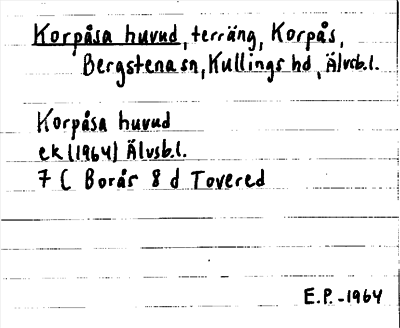 Korpåsa huvud, terräng, Korpås,
Bergstena sn, Kullings hd, Älvsb.l.
Korpåsa huvud
ek (1964) Älvsb.l.
7 C Borås 8 d Tovered
E.P. -1964